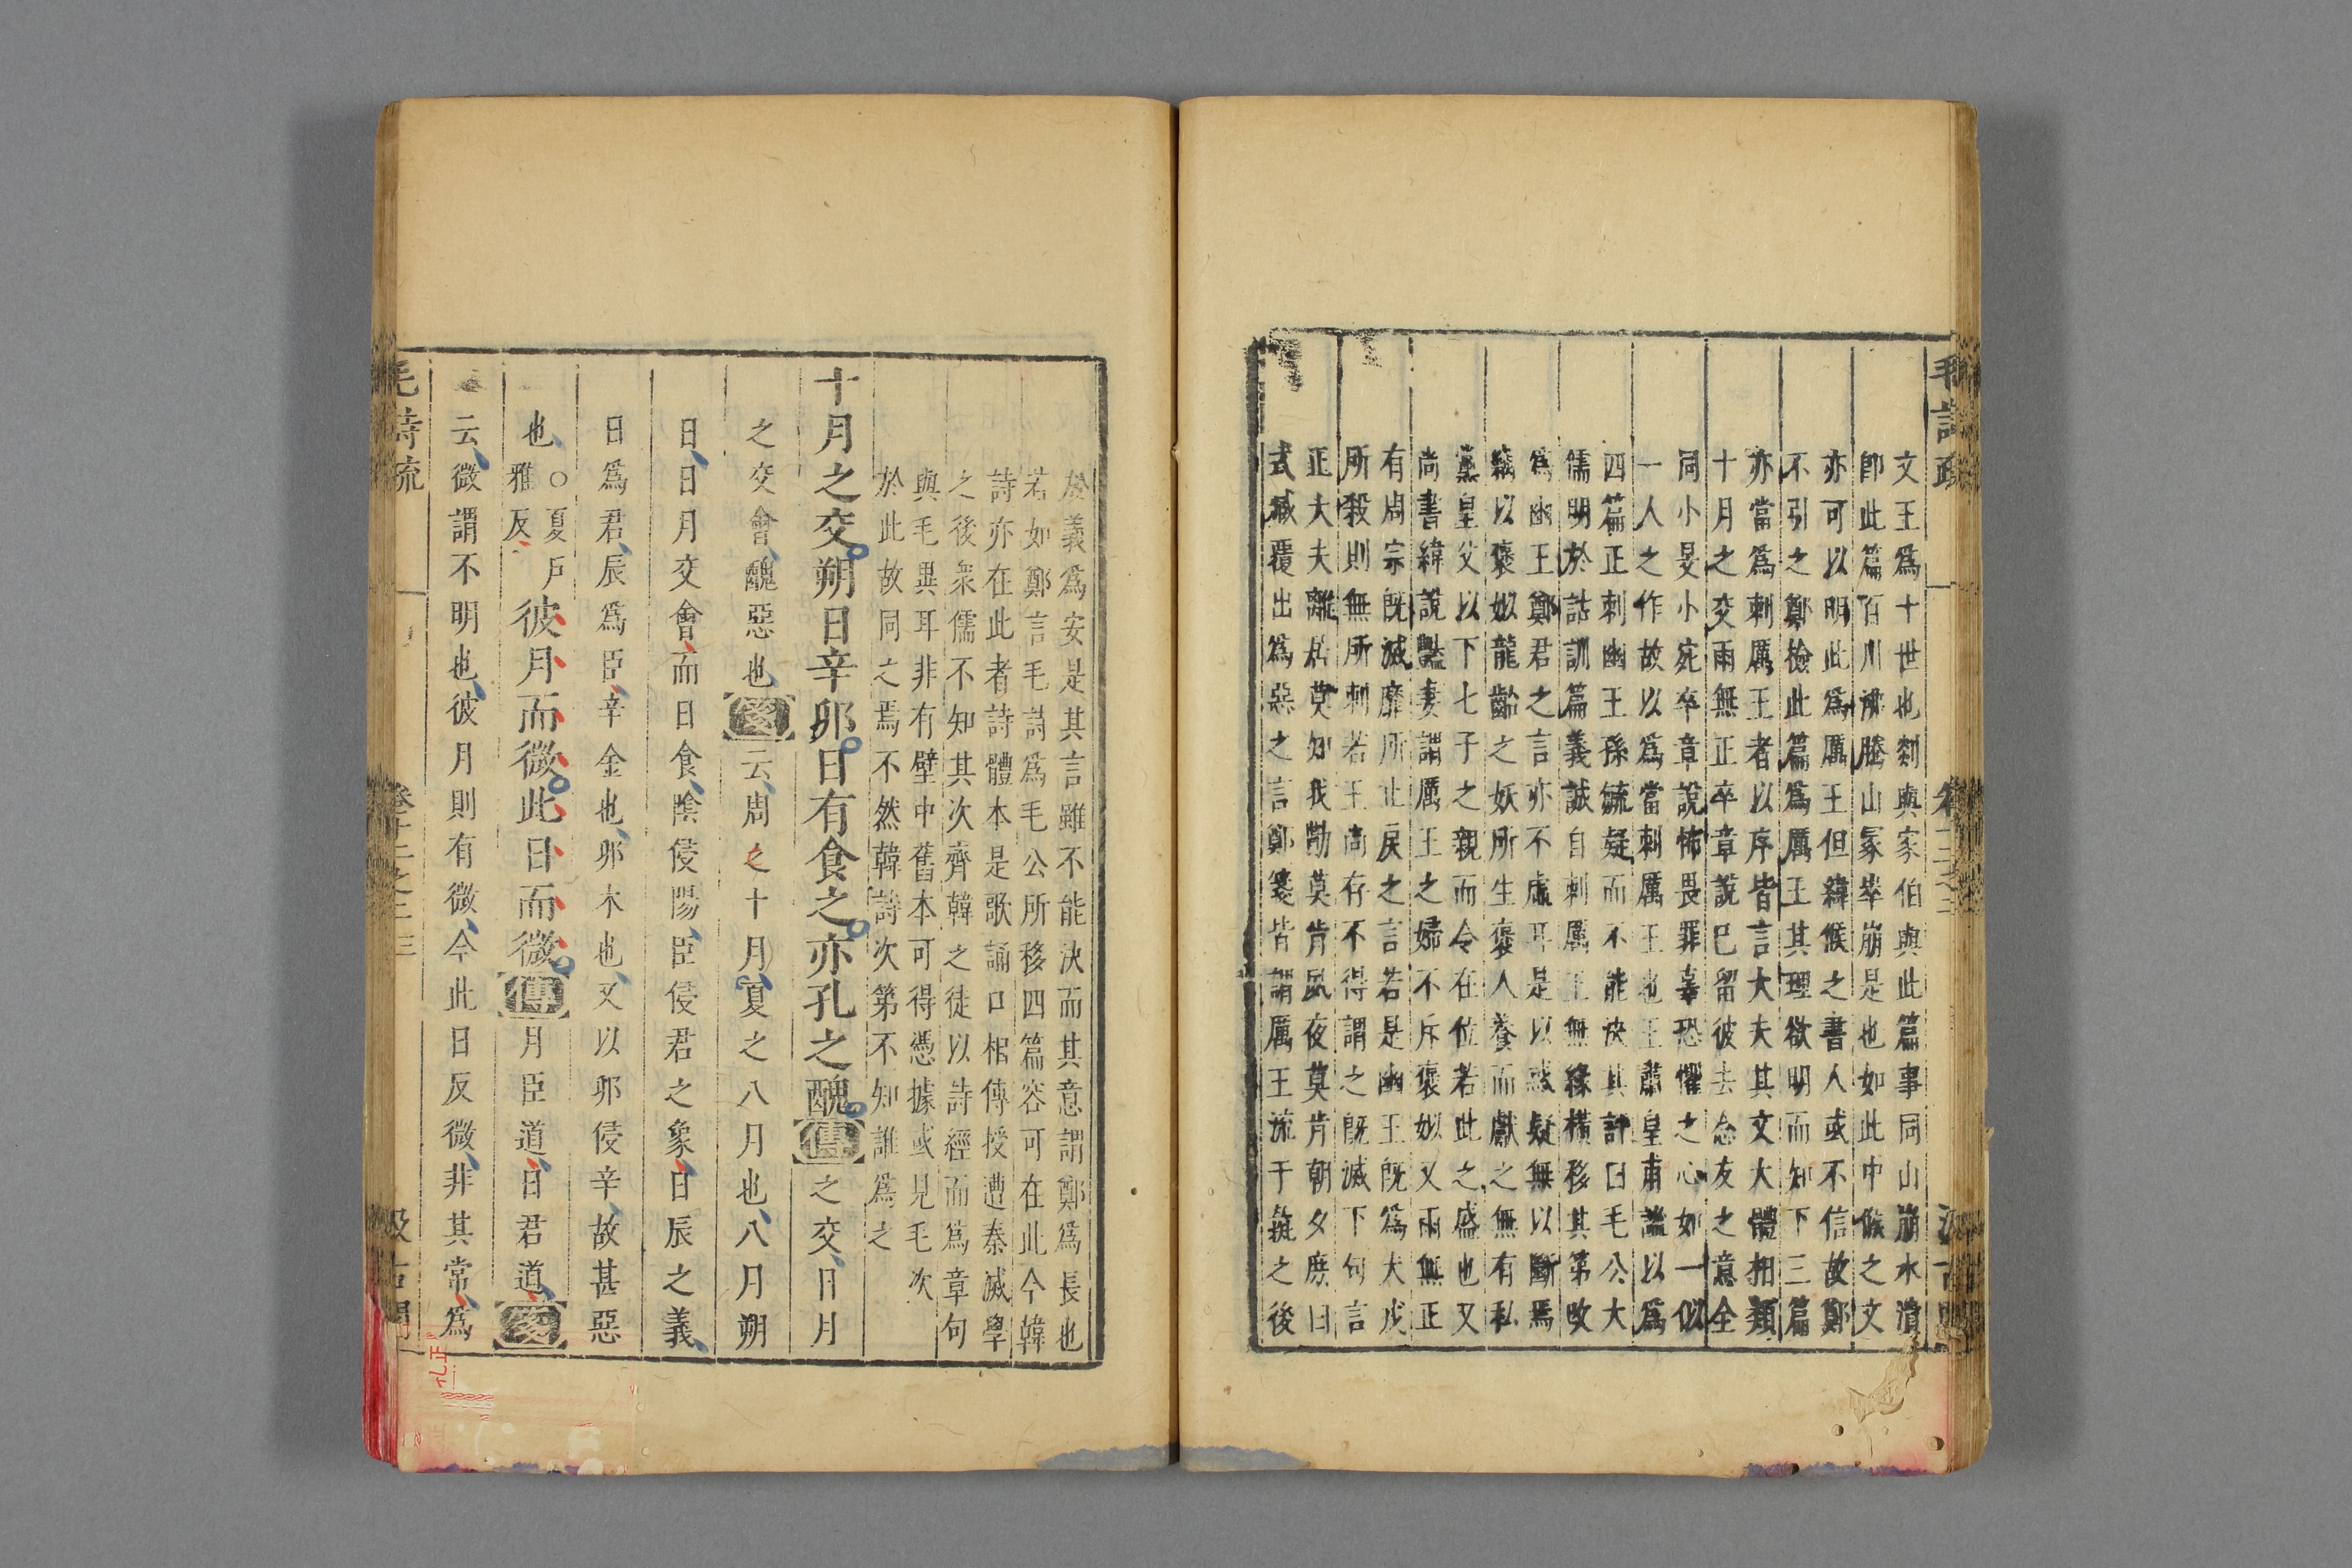 毛詩疏
卷十二之三
文王爲十世也剡與家伯與此篇事同山崩水潰
卽此篇百川沸騰山冢崒崩是也如此中候之文
亦可以明此爲厲王但緯候之書人或不信故鄭
不引之鄭檢此篇爲厲王其理欲明而知下三篇
亦當爲刺厲王者以序皆言大夫其文大體相類
十月之交雨無正卒章說巳留彼去念友之意全
同小旻小宛卒章說怖畏罪辜恐懼之心如一似
一人之作故以爲當刺厲王也王肅皇甫謐以爲
四篇正刺幽王孫毓疑而不能決其評曰毛公大
儒明於詁訓篇義誠自刺厲王無緣橫移其第改
爲幽王鄭君之言亦不虛耳是以惑疑無以斷焉
竊以褒姒龍齝之妖所生褒人養而獻之無有私
黨皇父以下七子之親而令在位若此之盛也又
尚書緯說豔妻謂厲王之婦不斥褒姒又雨無正
有周宗旣滅靡所止戾之言若是幽王旣爲犬戎
所殺則無所刺若王尚存不得謂之旣滅下句言
正大夫離居莫知我勩莫肯夙夜莫肯朝夕庶曰
式臧覆出爲惡之言鄭箋皆謂厲王流于彘之後
於義爲安是其言雖不能決而其意謂鄭爲長也
若如鄭言毛詩爲毛公所移四篇容可在此今韓
詩亦在此者詩體本是歌誦口相傳授遭秦滅學
之後衆儒不知其次齊韓之徒以詩經而爲章句
與毛異耳非有壁中舊本可得憑據或見毛次
於此故同之焉不然韓詩次第不知誰爲之
十月之交朔日辛卯日有食之亦孔之醜傳之交日月
之交會醜惡也箋云周之十月夏之八月也八月朔
日日月交會而日食陰侵陽臣侵君之象日辰之義
日爲君辰爲臣辛金也卯木也又以卯侵辛故甚惡
也○夏戶雅反彼月而微此日而微傳月臣道日君道箋
云微謂不明也彼月則有微今此日反微非其常爲
毛詩疏
卷十二之三
三
汲古閣